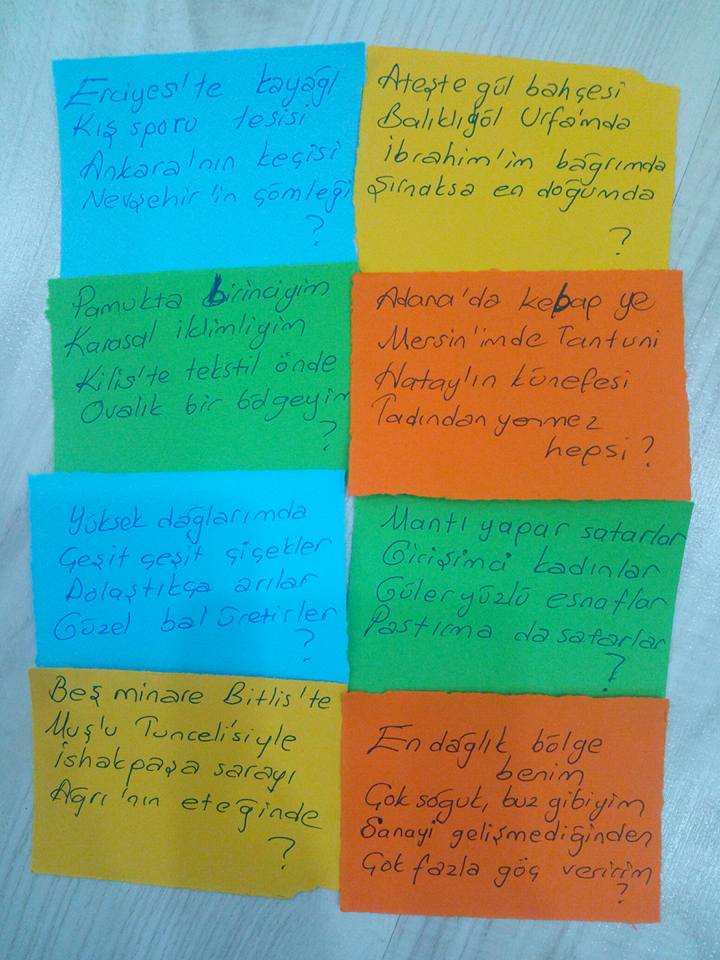 Erciyes'te kayağı
Kış sporu tesisi
Ankara'nın keçisi
Nevşehir'in çömleği
?
Ateşte gül bahçesi
Balıklıgöl Urfa'mda
İbrahim'im bağrımda
Şırnaksa en doğumda
?
Pamukta birinciyim
Karasal iklimliyim
Kilis'te tekstil önde
Ovalık bir bölgeyim
?
Adana'da kebap ye
Mersin'imde Tantuni
Hatay'ın künefesi
Tadından yenmez
hepsi?
Yüksek dağlarımda
Çeşit çeşit çiçekler
Dolaştıkça arılar
Güzel bal üretirler
?
Mantı yapar satarlar
Girişimci kadınlar
Güler yüzlü esnaflar
Pastırma da satarlar
?
Beş minare Bitlis'te
Muş'u Tunceli'siyle
İshakpaşa sarayı
Ağrı'nın eteğinde
?
En dağlık bölge
benim
Çok soğuk, buz gibiyim
Sanayi gelişmediğinden
Çok fazla göç veririm
?